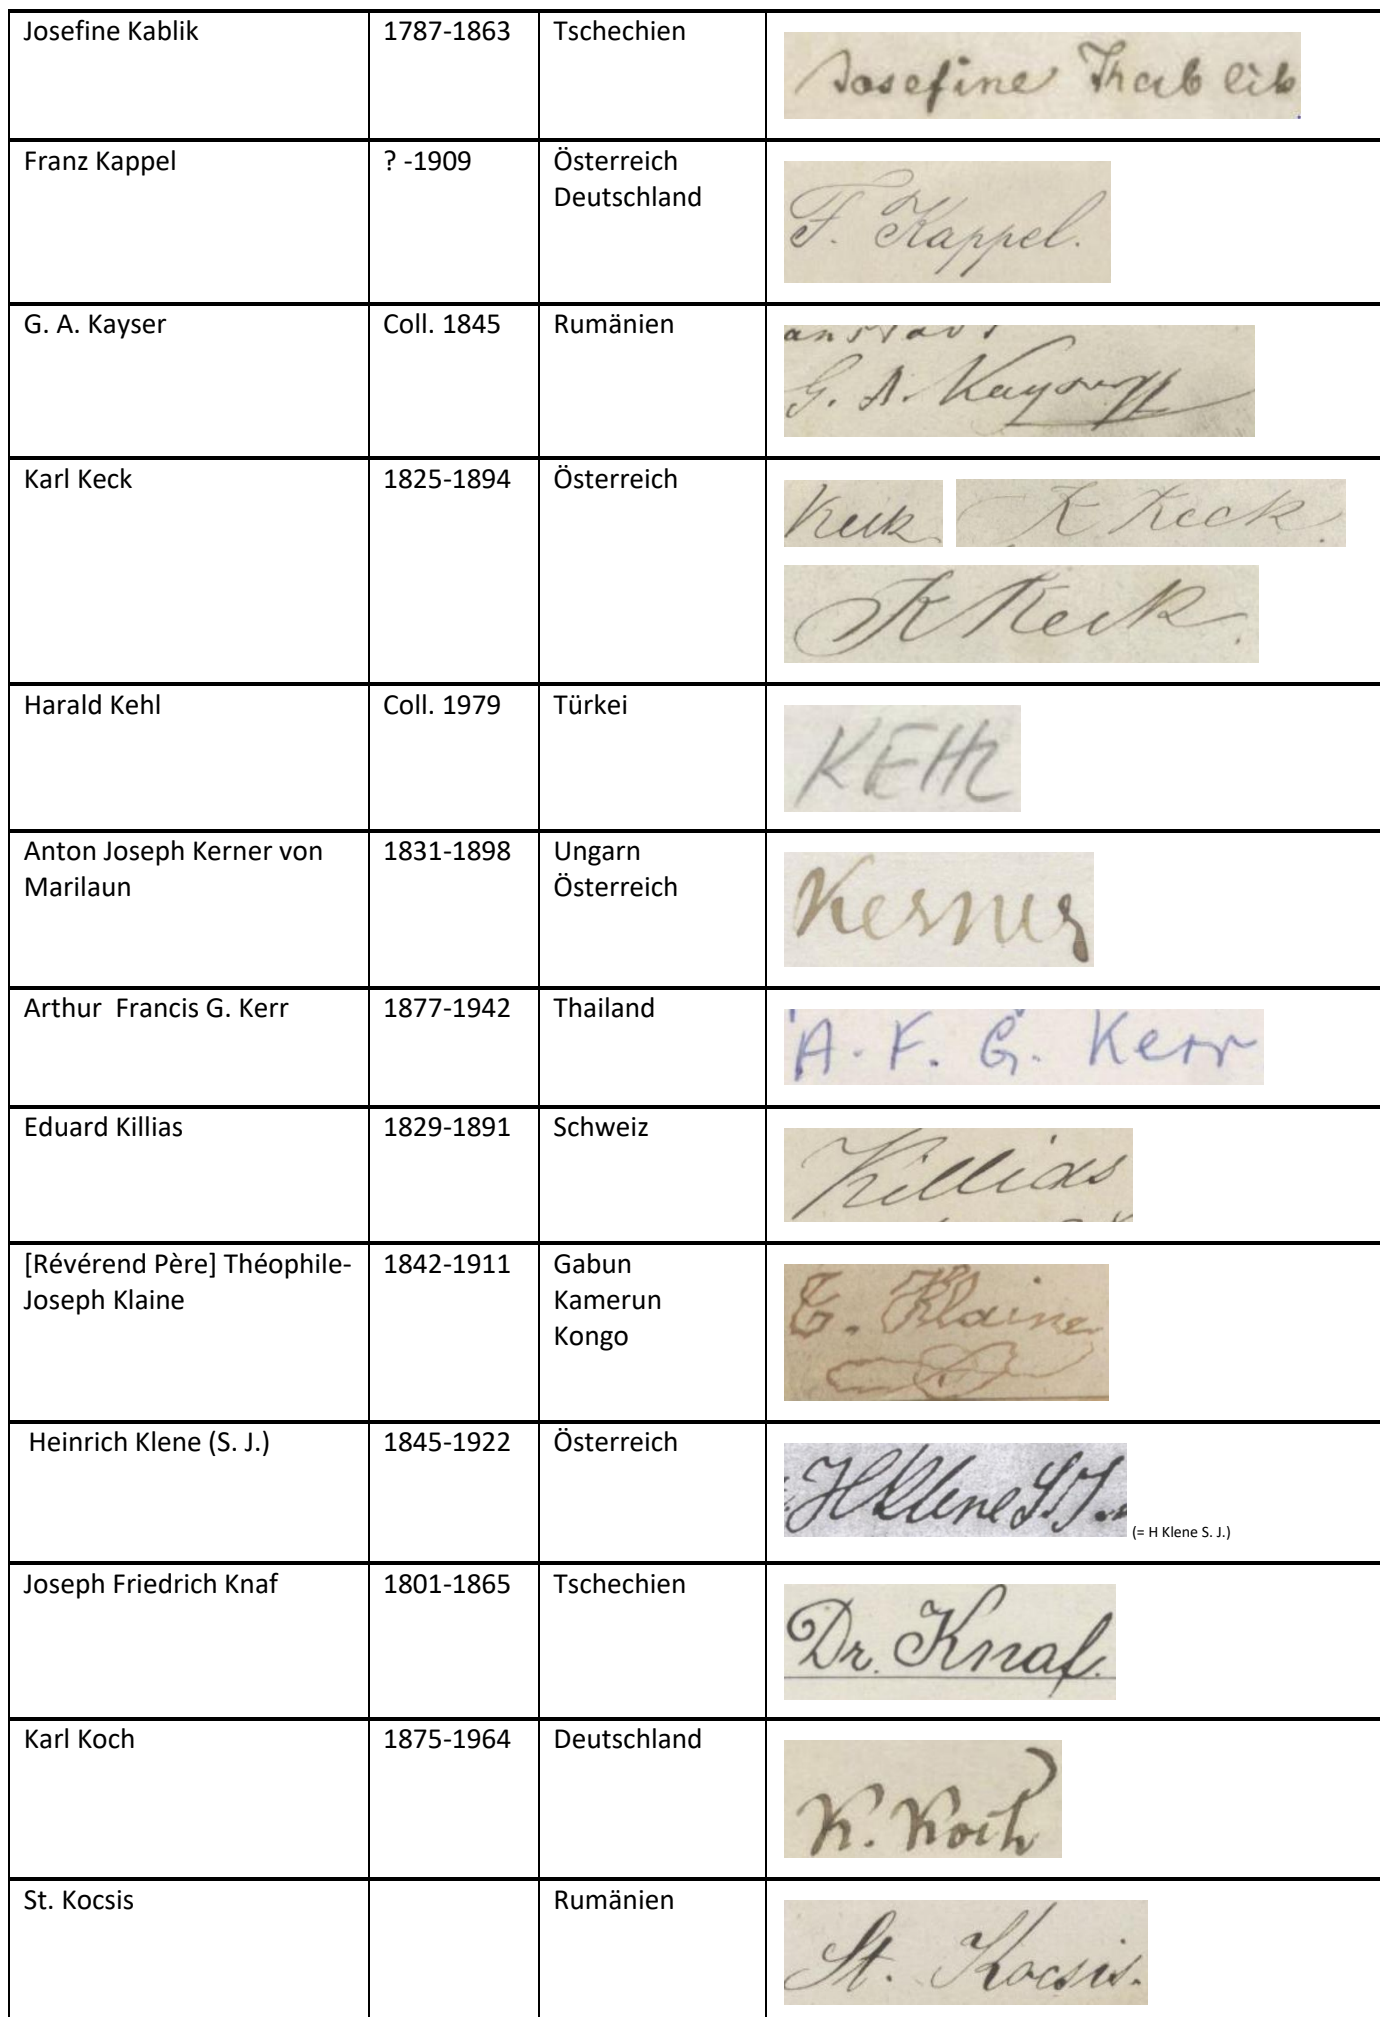 Josefine Kablik 1787-1863 Tschechien Josefine Kablik
Franz Kappel ? -1909 Österreich
Deutschland
F. Kappel.
G. A. Kayser Coll. 1845 Rumänien
G. A. Kayser
Karl Keck 1825-1894 Österreich Keck K Keck.
K Keck.
Harald Kehl Coll. 1979 Türkei
KEHL
Anton Joseph Kerner von 1831-1898 Ungarn
Marilaun Österreich
Kerner
Arthur Francis G. Kerr 1877-1942 Thailand
A. F. G. Kerr
Eduard Killias 1829-1891 Schweiz
Killias
[Révérend Père] Théophile- 1842-1911 Gabun
Joseph Klaine Kamerun
Kongo
T. Klaine
Heinrich Klene (S. J.) 1845-1922 Österreich
H Klene S. J. (= H Klene S. J.)
Joseph Friedrich Knaf 1801-1865 Tschechien
Dr. Knaf.
Karl Koch 1875-1964 Deutschland
K. Koch
St. Kocsis Rumänien
St. Kocsis.